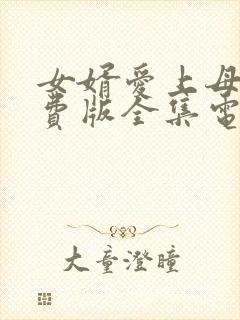 女婿愛上母
費版全集電
大童澄瞳